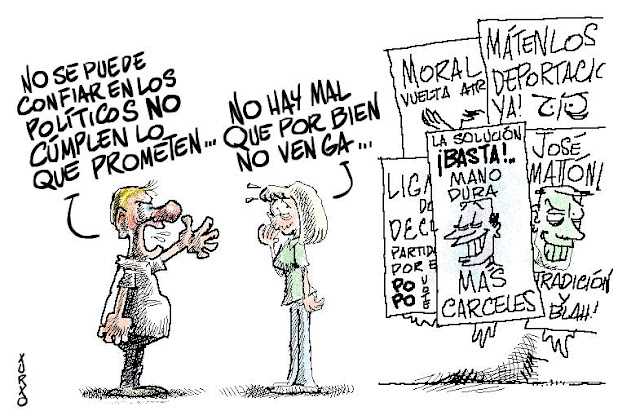 NO SE PUEDE
CONFIAR EN LOS
POLÍTICOS NO
CÚMPLEN LO
QUE PROMETEN...
NO HAY MAL
QUE POR BIEN
NO VENGA...
MORAL
VUELTA ATR
MÁTENLOS
DEPORTACIC
YA!
LA SOLUCIÓN
¡BASTA!..
MANO
DURA
MÁS
CARCELES
LIGA
DE
DEC
PARTID
POR E
PO
PO
JOSÉ
MATTÓNI
TRADICIÓN
Y
BLAH!
YURXO